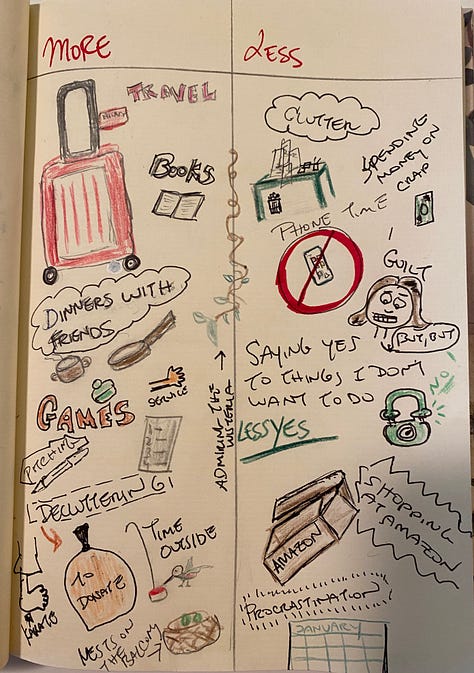 MORE
TRAVEL
BOOKS
DINNERS WITH
FRIENDS
GAMES
SERVICE
PITCHING
DECLUTTERING
TO
DONATE
TIME
OUTSIDE
KARATE
NESTS ON
THE BALCONY
ADMIRING THE
WISTERIA
LESS
CLUTTER
SPENDING
MONEY ON
CRAP
PHONE TIME
GUILT
BUT, BUT
SAYING YES
TO THINGS I DON'T
WANT TO DO
NO
LESS YES
AMAZON
SHOPPING
AT AMAZON
PROCRASTINATION
JANUARY